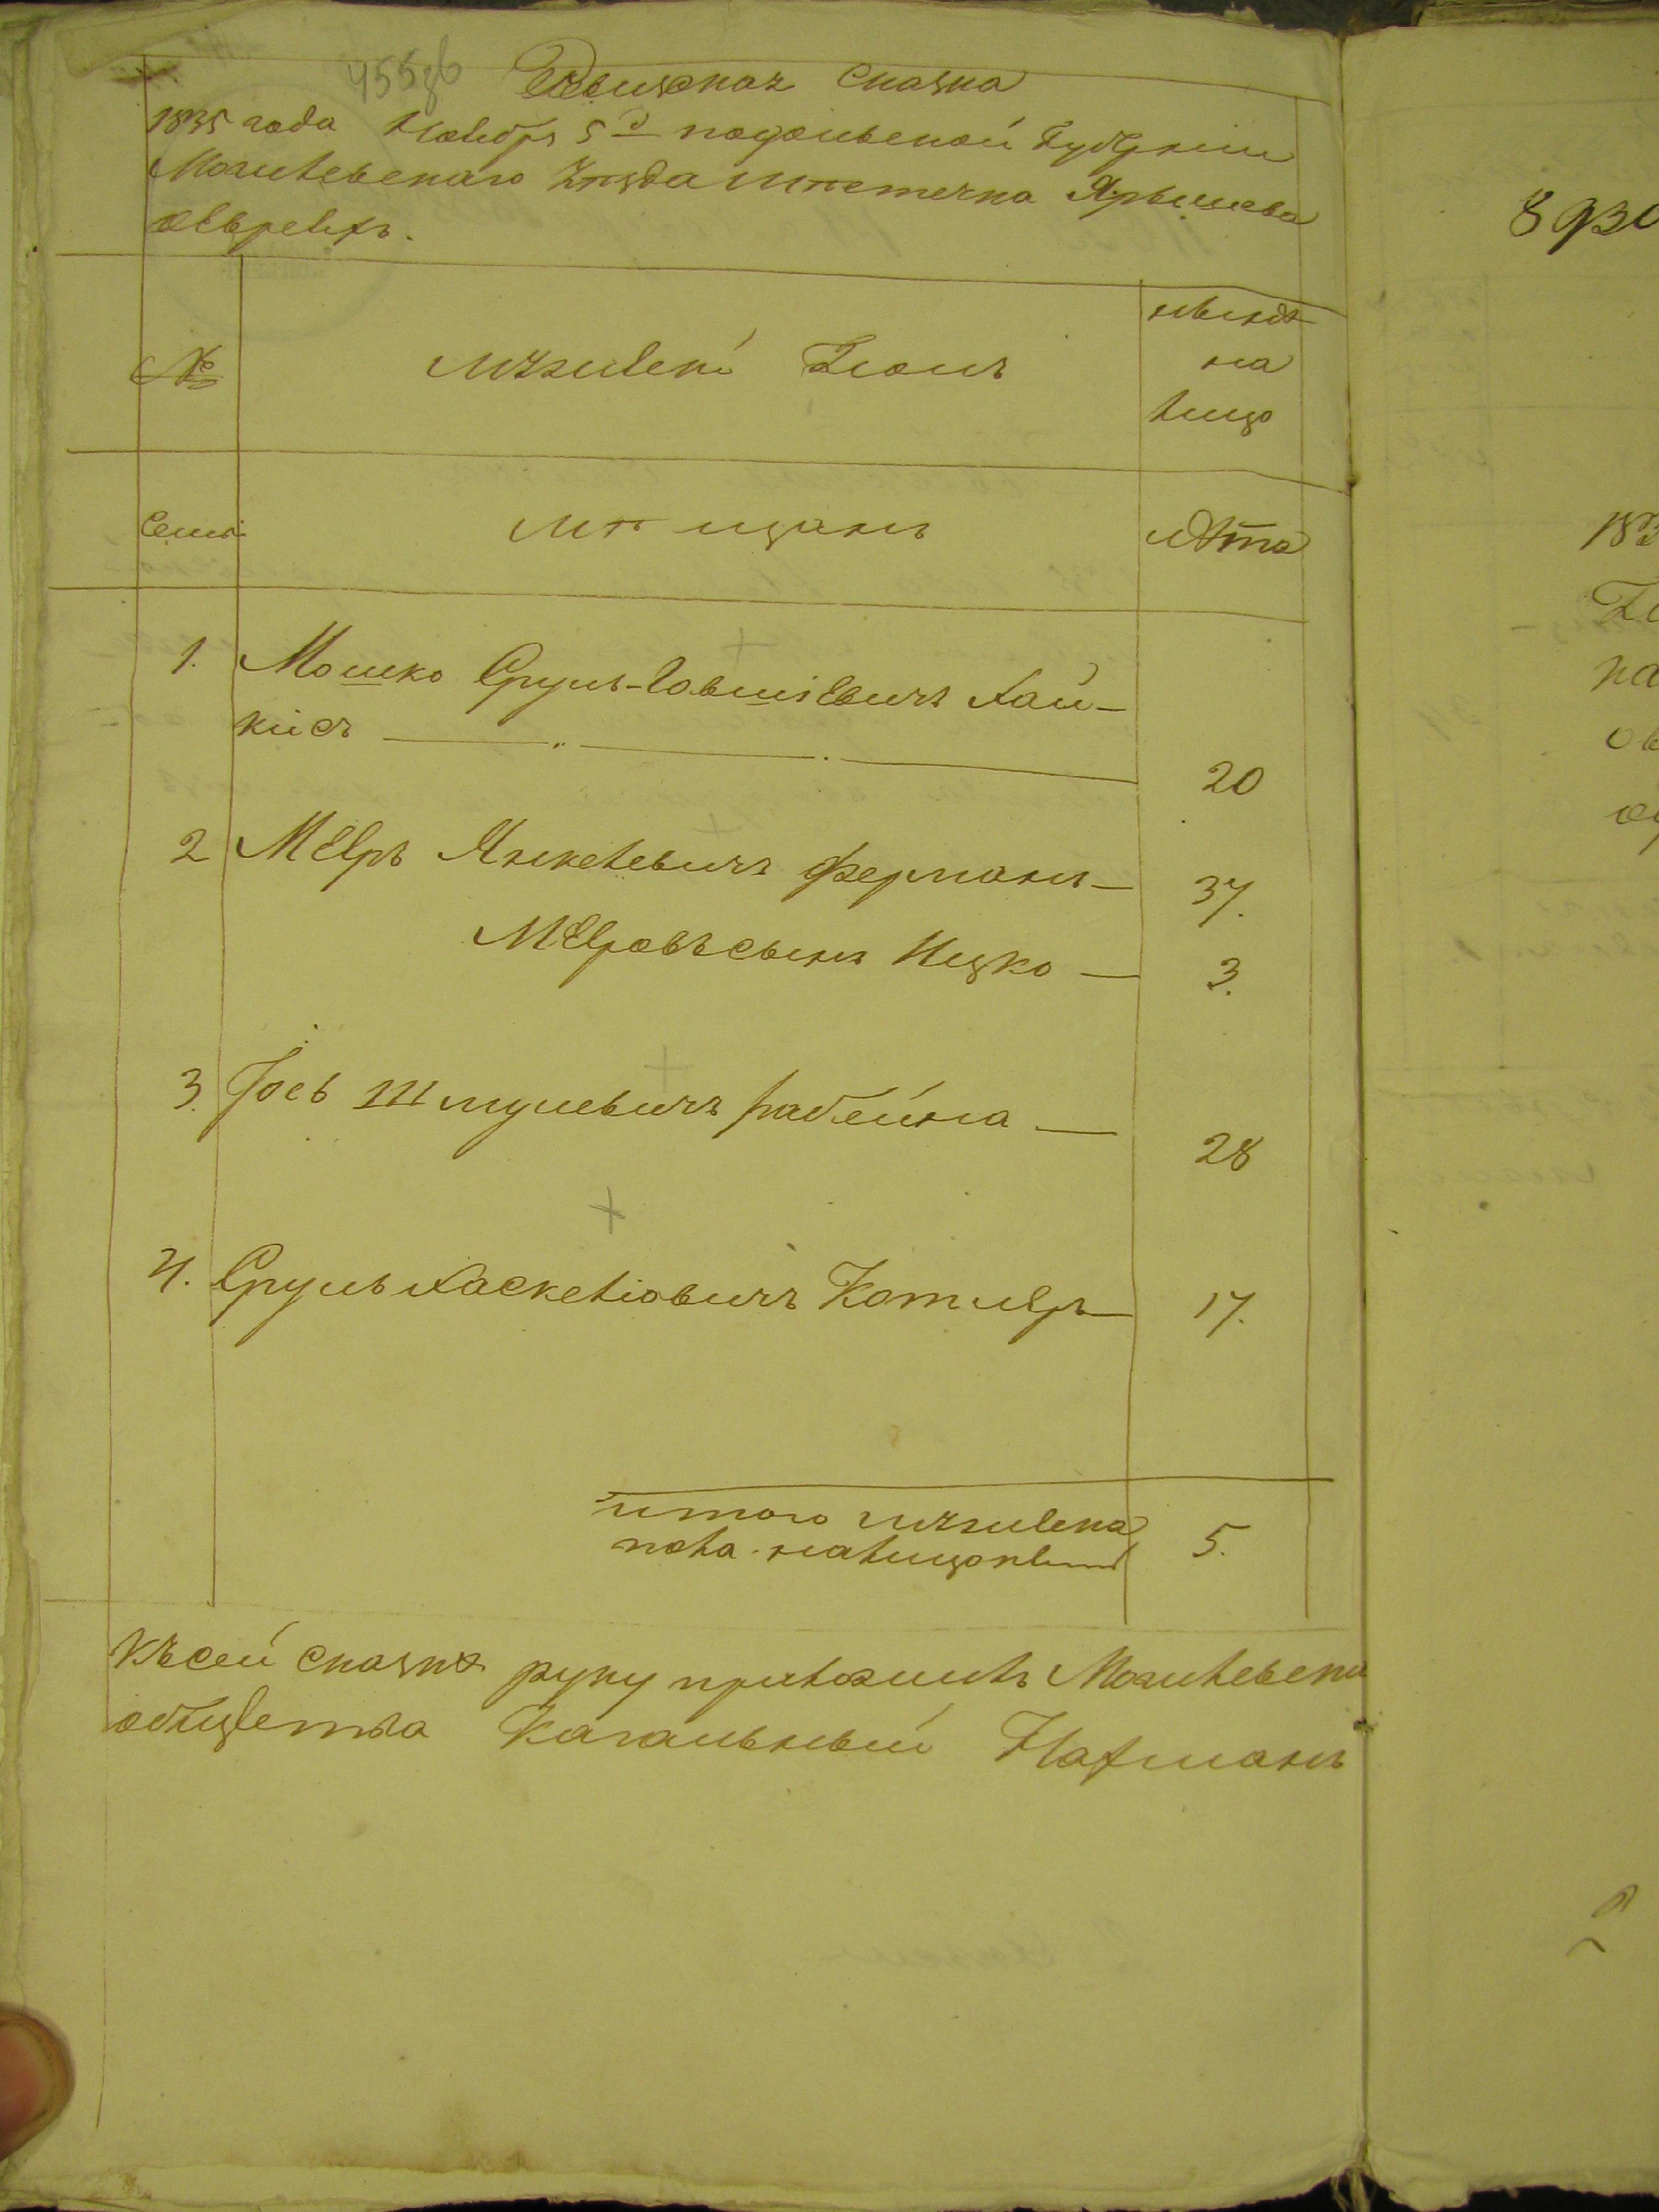 455 зв
Ревизская Сказка
1835 года Ноября 5 д подольской Губернии
Могилевского Уезда местечка Ярышева
о евреях.
№
мужеский полъ
ныне
на
лицо
Семьи
мещанъ
лѣта
1. Мошко Сруль-Іовшіевичъ Хай-
кисъ — 20
2 Меэръ Янкелевичъ Ферманъ — 37.
Меэровъ сынъ Ицко — 3.
3. Іось Шмулевичъ рабейна — 28
4. Сруль Хаскеліовичъ Котляръ — 17.
итого мужеска
пола на лицо 5.
Къ сей сказке руку приложилъ Могилевски
общества Кагальный Нафманъ
8
183